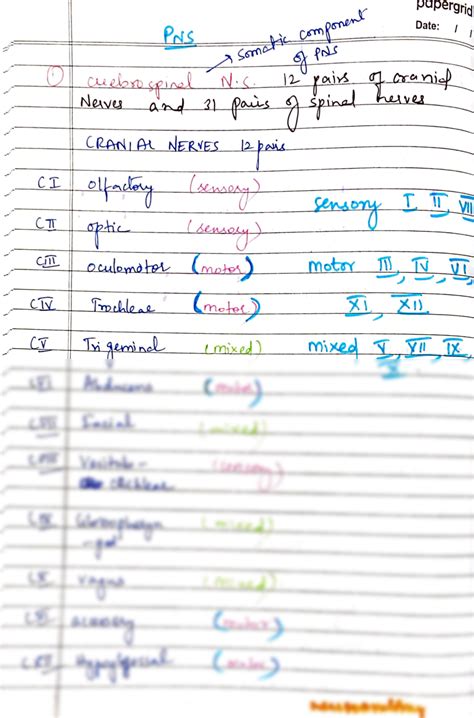 papergrid
Date: / /
PNS
→ Somatic component of PNS
① cerebrospinal N.S. 12 pairs of cranial
Nerves and 31 pairs of spinal nerves
CRANIAL NERVES 12 pairs
CI olfactory (sensory)
sensory I, II, VII
CII optic (sensory)
CIII oculomotor (motor) motor III, IV, VI,
CIV Trochlear (motor) XI, XII
CV Trigeminal (mixed) mixed V, VII, IX,
X
CVI Abducens (motor)
CVII Facial (mixed)
CVIII (sensory)
CIX (mixed)
CX vagus (mixed)
CXI accessory (motor)
CXII Hypoglossal (motor)